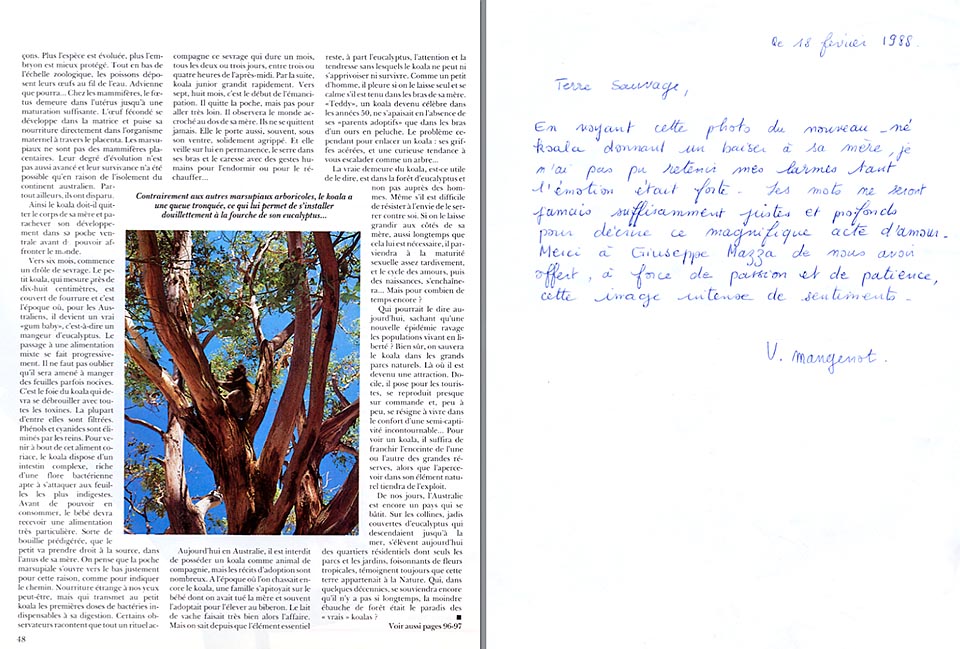 çons. Plus l'espèce est évoluée, plus l'em-
bryon est mieux protégé. Tout en bas de
l'échelle zoologique, les poissons dépo-
sent leurs œufs au fil de l'eau. Advienne
que pourra... Chez les mammifères, le fœ-
tus demeure dans l'utérus jusqu'à une
maturation suffisante. L'œuf fécondé se
développe dans la matrice et puise sa
nourriture directement dans l'organisme
maternel à travers le placenta. Les marsu-
piaux ne sont pas des mammifères pla-
centaires. Leur degré d'évolution n'est
pas aussi avancé et leur survivance n'a été
possible qu'en raison de l'isolement du
continent australien. Par-
tout ailleurs, ils ont disparu.
Ainsi le koala doit-il quit-
ter le corps de sa mère et pa-
rachever son développe-
ment dans sa poche ven-
trale avant de pouvoir af-
fronter le monde.
Vers six mois, commence
un drôle de sevrage. Le pe-
tit koala, qui mesure près de
dix-huit centimètres, est
couvert de fourrure et c'est
l'époque où, pour les Aus-
traliens, il devient un vrai
«gum baby», c'est-à-dire un
mangeur d'eucalyptus. Le
passage à une alimentation
mixte se fait progressive-
ment. Il ne faut pas oublier
qu'il sera amené à manger
des feuilles parfois nocives.
C'est le foie du koala qui de-
vra se débrouiller avec tou-
tes les toxines. La plupart
d'entre elles sont filtrées.
Phénols et cyanides sont éli-
minés par les reins. Pour ve-
nir à bout de cet aliment co-
riace, le koala dispose d'un
intestin complexe, riche
d'une flore bactérienne
apte à s'attaquer aux feuil-
les les plus indigestes.
Avant de pouvoir en
consommer, le bébé devra
recevoir une alimentation
très particulière. Sorte de
bouillie prédigérée, que le
petit va prendre droit à la source, dans
l'anus de sa mère. On pense que la poche
marsupiale s'ouvre vers le bas justement
pour cette raison, comme pour indiquer
le chemin. Nourriture étrange à nos yeux
peut-être, mais qui transmet au petit
koala les premières doses de bactéries in-
dispensables à sa digestion. Certains ob-
servateurs racontent que tout un rituel ac-
48
compagne ce sevrage qui dure un mois,
tous les deux ou trois jours, entre trois ou
quatre heures de l'après-midi. Par la suite,
koala junior grandit rapidement. Vers
sept, huit mois, c'est le début de l'émanci-
pation. Il quitte la poche, mais pas pour
aller très loin. Il observera le monde ac-
croché au dos de sa mère. Ils ne se quittent
jamais. Elle le porte aussi, souvent, sous
son ventre, solidement agrippé. Et elle
veille sur lui en permanence, le serre dans
ses bras et le caresse avec des gestes hu-
mains pour l'endormir ou pour le ré-
chauffer...
Contrairement aux autres marsupiaux arboricoles, le koala a
une queue tronquée, ce qui lui permet de s'installer
douillettement à la fourche de son eucalyptus...
Aujourd'hui en Australie, il est interdit
de posséder un koala comme animal de
compagnie, mais les récits d'adoption sont
nombreux. A l'époque où l'on chassait en-
core le koala, une famille s'apitoyait sur le
bébé dont on avait tué la mère et souvent
l'adoptait pour l'élever au biberon. Le lait
de vache faisait très bien alors l'affaire.
Mais on sait depuis que l'élément essentiel
reste, à part l'eucalyptus, l'attention et la
tendresse sans lesquels le koala ne peut ni
s'apprivoiser ni survivre. Comme un petit
d'homme, il pleure si on le laisse seul et se
calme s'il est tenu dans les bras de sa mère.
«Teddy», un koala devenu célèbre dans
les années 50, ne s'apaisait en l'absence de
ses «parents adoptifs» que dans les bras
d'un ours en peluche. Le problème ce-
pendant pour enlacer un koala : ses grif-
fes acérées, et une curieuse tendance à
vous escalader comme un arbre...
La vraie demeure du koala, est-ce utile
de le dire, est dans la forêt d'eucalyptus et
non pas auprès des hom-
mes. Même s'il est difficile
de résister à l'envie de le ser-
rer contre soi. Si on le laisse
grandir aux côtés de sa
mère, aussi longtemps que
cela lui est nécessaire, il par-
viendra à la maturité
sexuelle assez tardivement,
et le cycle des amours, puis
des naissances, s'enchaîne-
ra... Mais pour combien de
temps encore ?
Qui pourrait le dire au-
jourd'hui, sachant qu'une
nouvelle épidémie ravage
les populations vivant en li-
berté ? Bien sûr, on sauvera
le koala dans les grands
parcs naturels. Là où il est
devenu une attraction. Do-
cile, il pose pour les touris-
tes, se reproduit presque
sur commande et, peu à
peu, se résigne à vivre dans
le confort d'une semi-capti-
vité incontournable... Pour
voir un koala, il suffira de
franchir l'enceinte de l'une
ou l'autre des grandes ré-
serves, alors que l'aperce-
voir dans son élément natu-
rel tiendra de l'exploit.
De nos jours, l'Australie
est encore un pays qui se
bâtit. Sur les collines, jadis
couvertes d'eucalyptus qui
descendaient jusqu'à la
mer, s'élèvent aujourd'hui
des quartiers résidentiels dont seuls les
parcs et les jardins, foisonnants de fleurs
tropicales, témoignent toujours que cette
terre appartenait à la Nature. Qui, dans
quelques décennies, se souviendra encore
qu'il n'y a pas si longtemps, la moindre
ébauche de forêt était le paradis des
« vrais » koalas ?
Voir aussi pages 96-97
Le 18 février 1988.
Terre Sauvage,
En voyant cette photo du nouveau-né
koala donnant un baiser à sa mère, je
n'ai pas pu retenir mes larmes tant
l'émotion était forte. Les mots ne seront
jamais suffisamment justes et profonds
pour décrire ce magnifique acte d'amour.
Merci à Giuseppe Mazza de nous avoir
offert, à force de passion et de patience,
cette image intense de sentiments.
V. Mangenot.